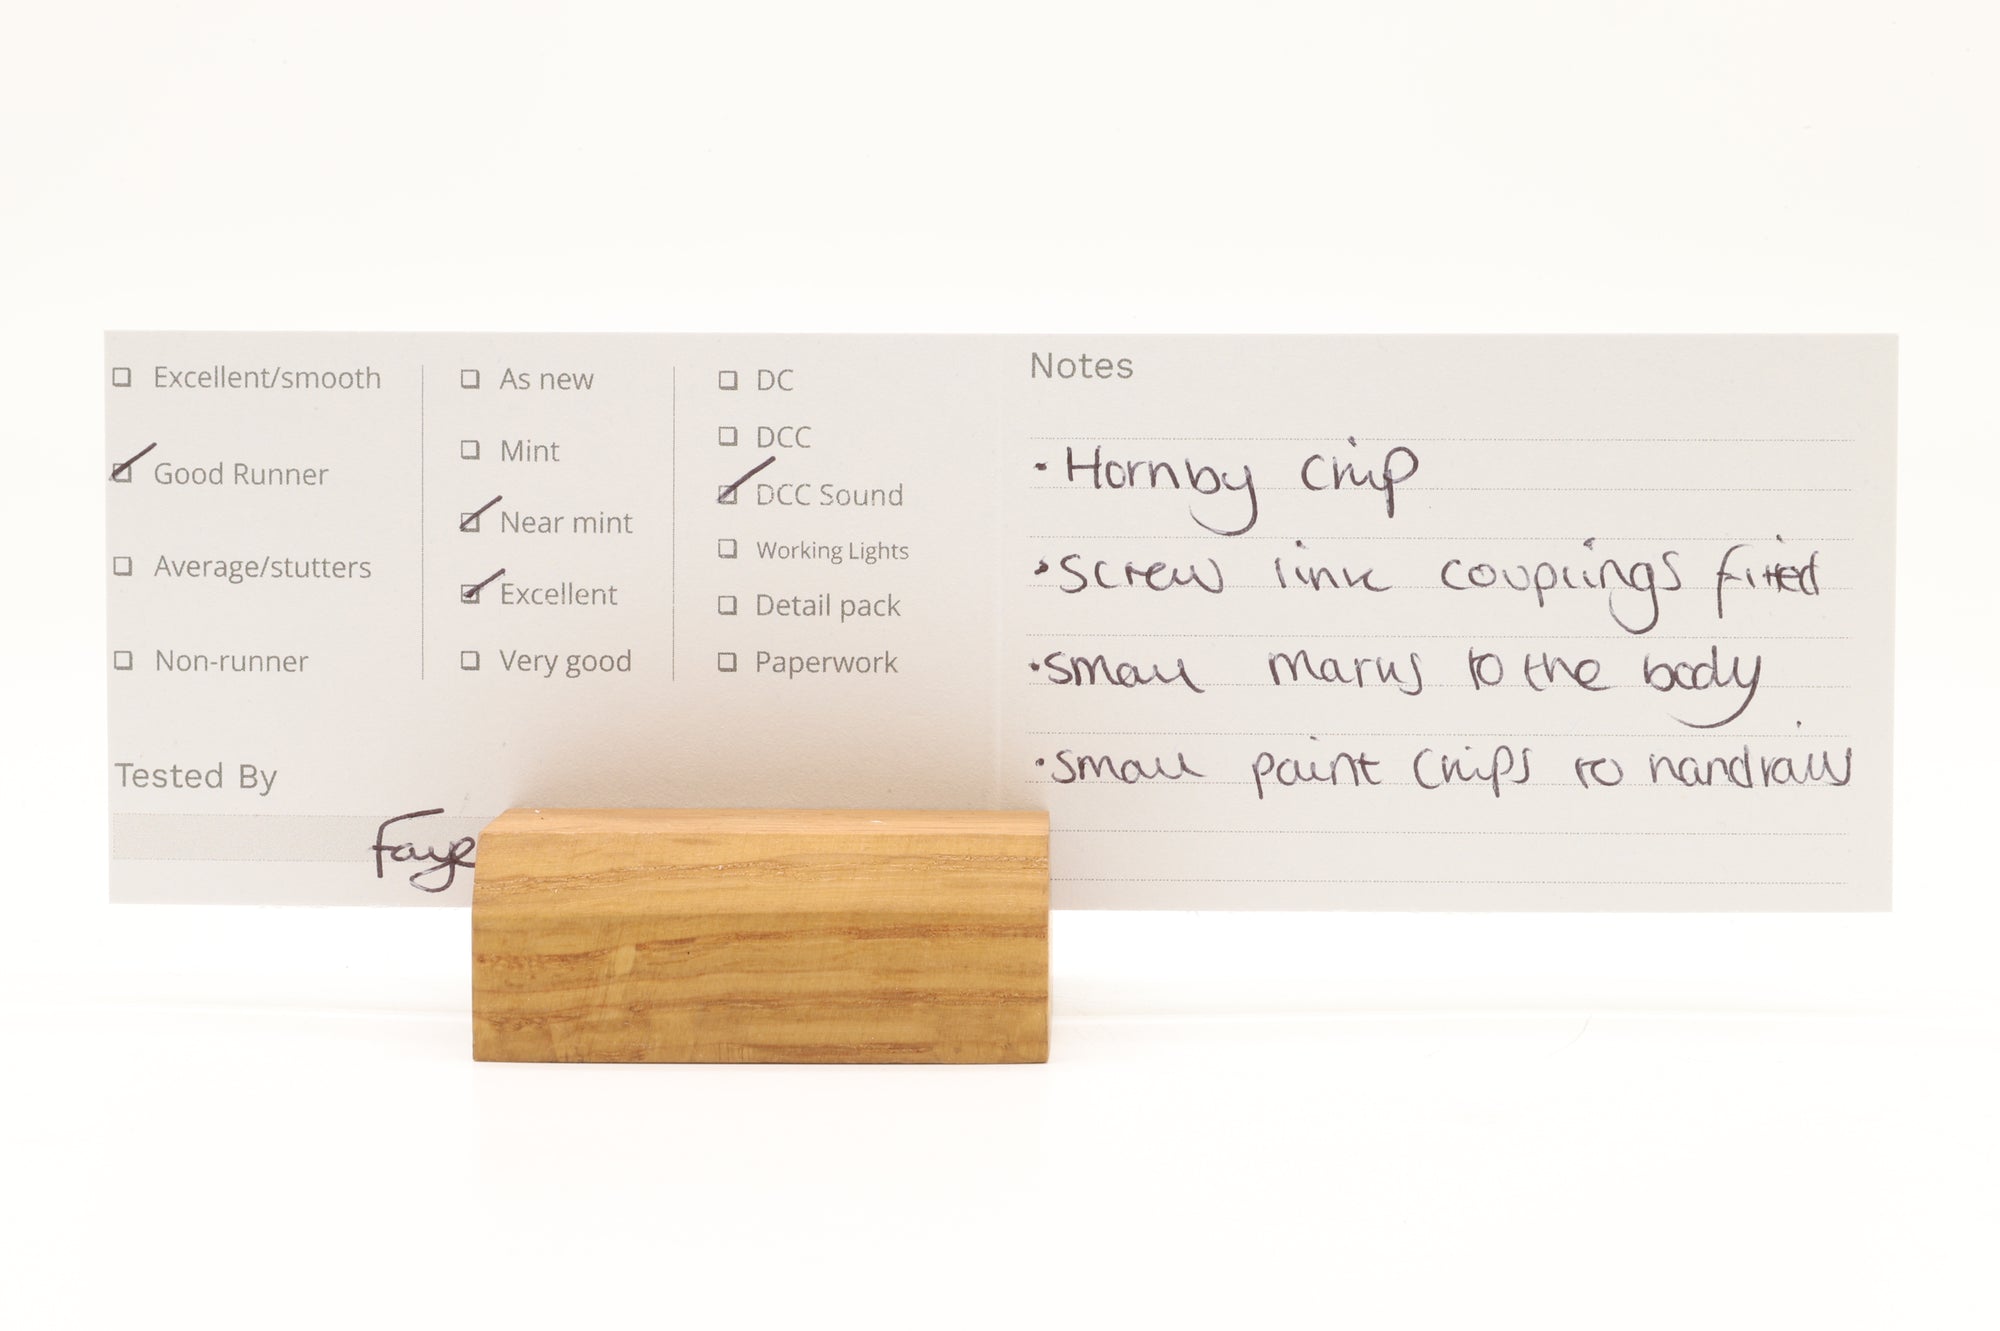 ☐ Excellent/smooth
☑ Good Runner
☐ Average/stutters
☐ Non-runner
☐ As new
☐ Mint
☑ Near mint
☑ Excellent
☐ Very good
☐ DC
☐ DCC
☑ DCC Sound
☐ Working Lights
☐ Detail pack
☐ Paperwork
Tested By
Faye
Notes
· Hornby chip
· screw link couplings fitted
· small marks to the body
· small paint chips to handrails